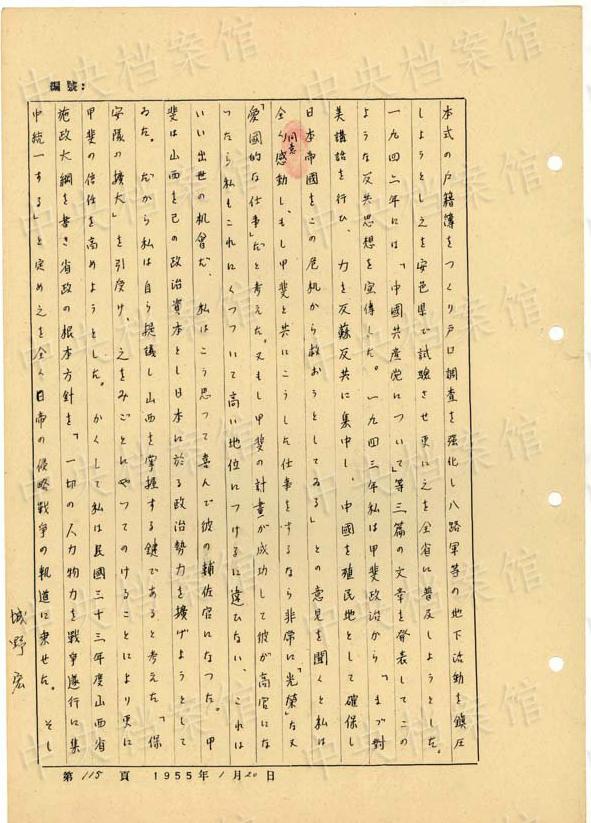 編號:
本式の戸籍簿をつくり戸口調査を強化し八路軍等の地下活動を鎮圧
しようとし之を安邑県で試験させ更に之を全省に普及しようとした。
一九四二年には「中國共産党について」等三篇の文章を発表してこの
ような反共思想を宣傳した。一九四三年私は甲斐政治から「まづ対
美講話を行ひ、力を反蘇反共に集中し、中國を殖民地として確保し
日本帝國をこの危机から救おうとしてゐる」との意見を聞くと私は
全く同意感動し、もし甲斐と共にこうした仕事をするなら非常に「光榮」な又
「愛國的な仕事」だと考えた。又もし甲斐の計畫が成功して彼が高官にな
つたら私もこれにくつついて高い地位につけるに違ひない、これは
いい出世の机會だ、私はこう思つて喜んで彼の輔佐官になつた。甲
斐は山西を己の政治資本とし日本に於る政治勢力を擴げようとして
ゐた。だから私は自ら提議し山西を掌握する鍵であると考えた「保
安隊の擴大」を引受け、之をみごとにやつてのけることにより更に
甲斐の信任を高めようとした。かくして私は民國三十三年度山西省
施政大綱を書き省政の根本方針を「一切の人力物力を戰爭遂行に集
中統一する」と定め之を全く日帝の侵略戰爭の軌道に乗せた。そし
城野宏
第 115 頁 1955年 1月 20日
中央档案馆